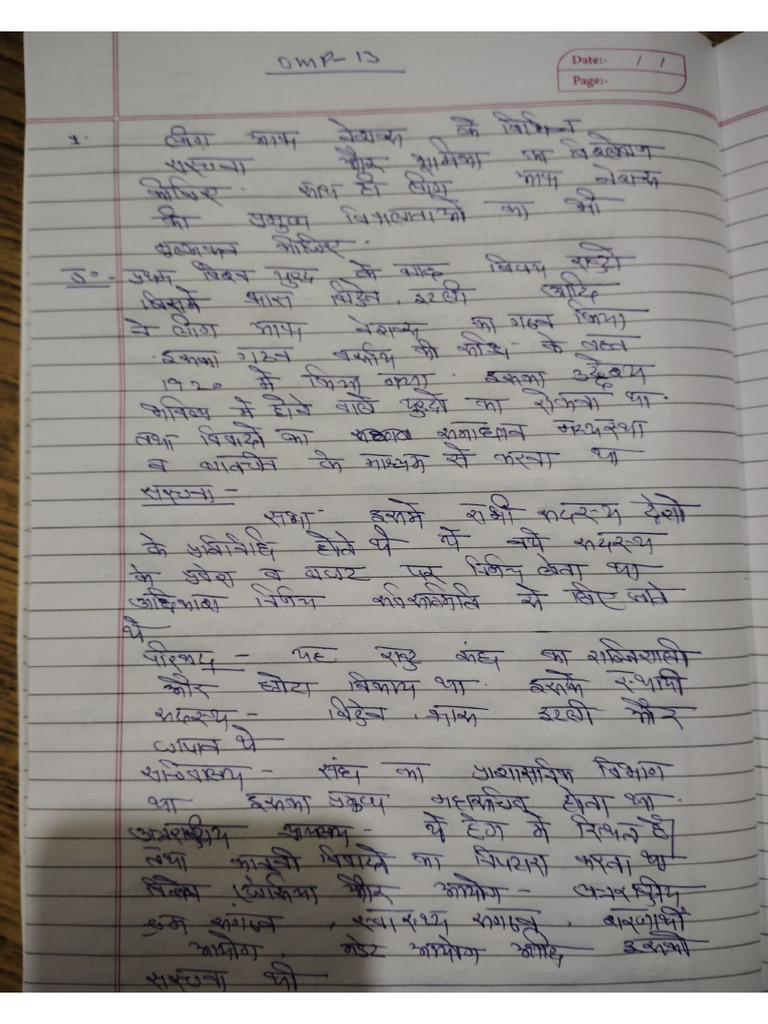 DMP-13
Date:- / /
Page:-
1. लीग आफ नेशन्स के विभिन्न
सरचना और भूमिका का विश्लेषण
कीजिए. साथ ही लीग आफ नेशन्स
की प्रमुख विफलताओ का भी
मुल्यांकन कीजिए.
उ०- प्रथम विश्व युध्द के बाद विजय राष्ट्रो
जिसमे फ्रास ब्रिटेन, इटली आदि
ने लीग आफ नेशन्स का गठन किया
इसका गठन वर्साय की संधि के तहत
1920 में किया गया. इसका उद्देश्य
भविष्य मे होने वाले युध्दो का रोकना था.
तथा विवादो का समाधान मध्यस्था
व बातचीत के माध्यम से करना था
सरचना -
सभा- इसमे सभी सदस्य देशो
के प्रतिनिधि होते थे ये नये सदस्य
के प्रवेश व बजट पर निर्णय लेता था
अधिकाश निर्णय सर्वसम्मति से लिए जाते
थे
परिषद - यह राष्ट्र संघ का शक्तिशाली
और छोटा निकाय था. इसके स्थायी
सदस्य - ब्रिटेन, फ्रास इटली और
जापान थे
सचिवालय - संघ का प्रशासनिक विभाग
था इसका प्रमुख महासचिव होता था.
अन्तराष्ट्रीय न्यायालय - ये हेग मे स्थित है
तथा कानूनी विवादो का निपटारा करता था
और आयोग - अन्तराष्ट्रीय
श्रम संगठन, स्वास्थ्य संगठन, शरणार्थी
आयोग, मेंडेट आयोग आदि इसकी
सरचना थी